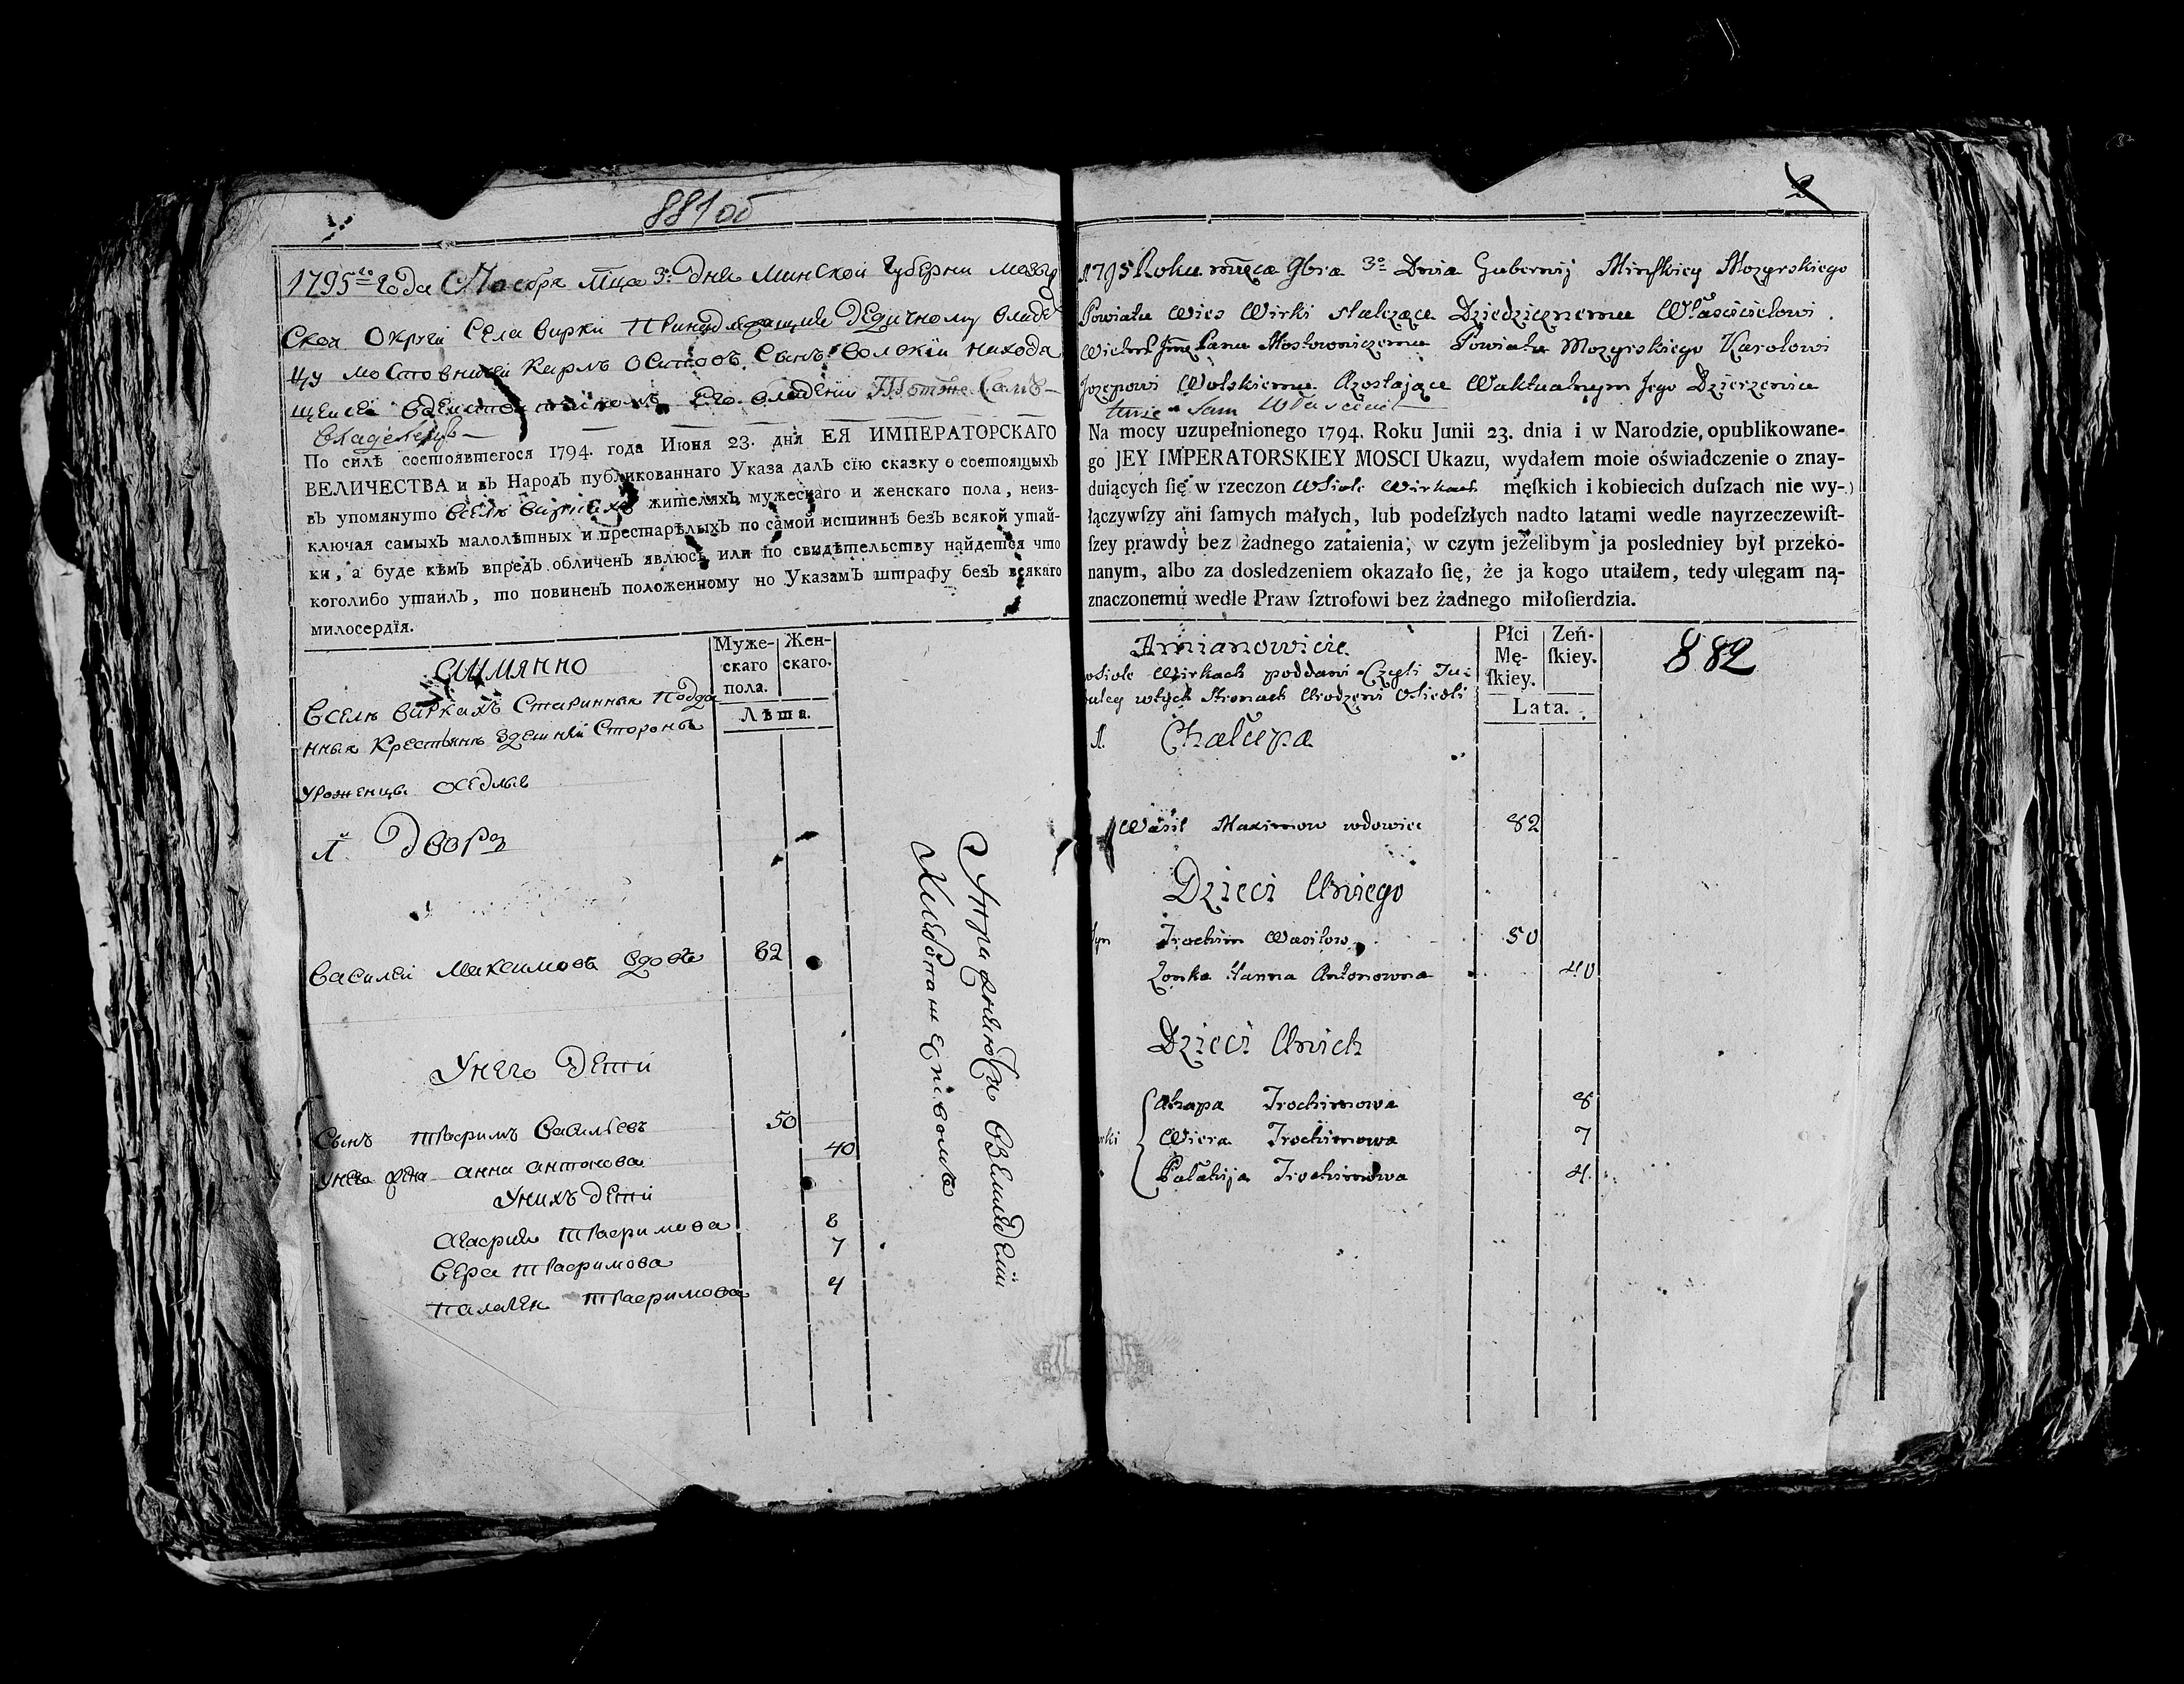 881об
1795го года Ноября мца 3го дня Минской губернии Мозыр
ской округи села Вирки принадлежащие дедичному владел
цу мостовничей Карлъ Осиповъ сынъ Волскiи находа
щейся его владении тотже самъ
владелецъ
По силѣ состоявшегося 1794. года Июня 23. дня ЕЯ ИМПЕРАТОРСКАГО
ВЕЛИЧЕСТВА и въ Народъ публикованнаго Указа далъ сїю сказку о состоящыхъ
въ упомянуто вселѣ Виркахъ жителяхъ мужескаго и женскаго пола, неиз-
ключая самыхъ малолѣтныхъ и престарѣлыхъ по самой истиннѣ безъ всякой утай-
ки, а буде кѣмъ впредъ обличенъ явлюсь или по свидѣтельству найдется что
коголибо утаилъ, то повиненъ положенному по Указамъ штрафу безъ всякаго
милосердїя.
Муже-
скаго
пола.
Жен-
скаго.
Лѣта.
Имянно
Вселе Виркахъ старинныя подда
нныя крестьяне здешней стороны
уроженцы оседлые
1й Дворъ
Василеи Максимовъ вдовъ 82
Унего дети
Сынъ Трафимъ Васильевъ 50
Унего жена Анна Антонова 40
Унихъ дети
Агафия Трафимова 8
Вера Трафимова 7
Палагея Трафимова 4
8
1795 Roku mca 9bra 3o Dnia Gubernij Minskiey Mozyrskiego
Powiatu Wies Wirki należące Dziedzicznemu Właścicielowi
Wielm Jmc Panu Mostowniczemu Powiatu Mozyrskiego Karolowi
Jozefowi Wolskiemu Azostające Waktualnym Jego Dzierzeniu
tenże Sam Właściciel
Na mocy uzupełnionego 1794. Roku Junii 23. dnia i w Narodzie, opublikowane-
go JEY IMPERATORSKIEY MOSCI Ukazu, wydałem moie oświadczenie o znay-
duiących ſię w rzeczon Wsiole Wirkach męſkich i kobiecich duſzach nie wy-
łączywſzy ani ſamych małych, lub podeſzłych nadto latami wedle nayrzeczewiſt-
ſzey prawdy bez żadnego zataienia; w czym jeżelibym ja posledniey był przeko-
nanym, albo za dosledzeniem okazało ſię, że ja kogo utaiłem, tedy ulęgam ną-
znaczonemu wedle Praw ſztrofowi bez żadnego miłoſierdzia.
Płci
Mę-
ſkiey.
Zeń-
ſkiey.
Lata.
882
Amianowicie
Wsiole Wirkach poddani Czyli Tu-
wtych Stronach Urodzeni Osiedli
1. Chałupa
Wasil Maximow wdowiec 82
Dzieci Uniego
Syn Trochim Wasilow 50
Zonka Hanna Antonowna 40
Dzieci Unich
Ahapa Trochimowa 8
Wiera Trochimowa 7
Pałahija Trochimowa 4